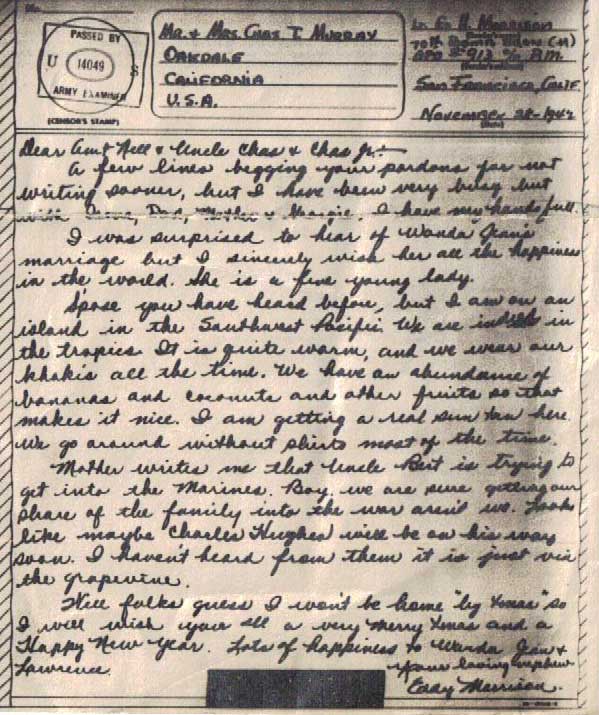 No.
PASSED BY
U 14049 S
ARMY EXAMINER
(CENSOR'S STAMP)
Mr. & Mrs. Chas T. Murray
Oakdale
California
U.S.A.
E. H. Morrison
70th Bomb (M)
APO # 912 P.M.
San Francisco, Calif.
November 28-1942
(Date)
Dear Aunt Nell & Uncle Chas & Chas Jr:-
A few lines begging your pardons for not
writing sooner, but I have been very busy but
with Dad, Mother & Margie. I have my hands full.
I was surprised to hear of Wanda Jean's
marriage but I sincerely wish her all the happiness
in the world. She is a fine young lady.
Spose you have heard before, but I am on an
island in the Southwest Pacific. We are in
the tropics. It is quite warm, and we wear our
khakis all the time. We have an abundance of
bananas and coconuts and other fruits so that
makes it nice. I am getting a real sun tan here.
We go around without shirts most of the time.
Mother writes me that Uncle Bert is trying to
get into the Marines. Boy, we are sure getting our
share of the family into the war aren't we. Looks
like maybe Charles Hughes will be on his way
soon. I haven't heard from them it is just via
the grapevine.
Well folks guess I won't be home "by Xmas" so
I will wish you all a very merry Xmas and a
Happy New Year. Lots of happiness to Wanda Jean &
Lawrence.
Your loving nephew
Eddy Morrison.